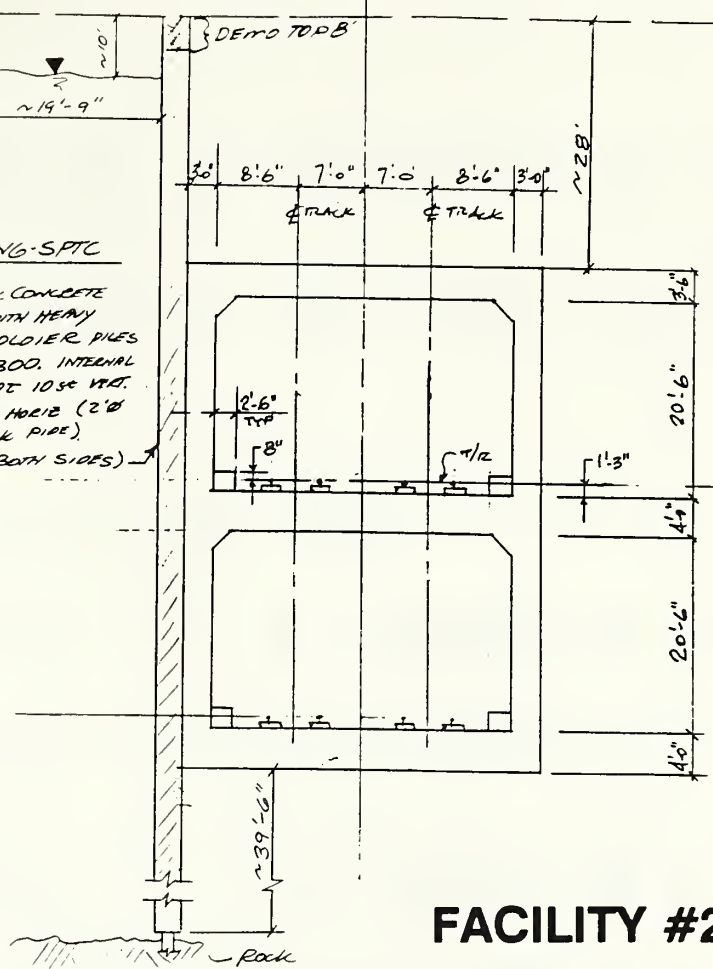 DEMO TOP 8'
~10'
~19'-9"
~28'
3'-0" 8'-6" 7'-0" 7'-0" 8'-6" 3'-0"
℄ TRACK ℄ TRACK
NG-SPTC
CONCRETE
WITH HEAVY
SOLDIER PILES
300. INTERNAL
VERT.
HORIZ (2'Ø
PIPE).
BOTH SIDES)
3'-6"
20'-6"
2'-6"
TYP
8"
T/R
1'-3"
4'-0"
20'-6"
4'-0"
~39'-6"
ROCK
FACILITY #2